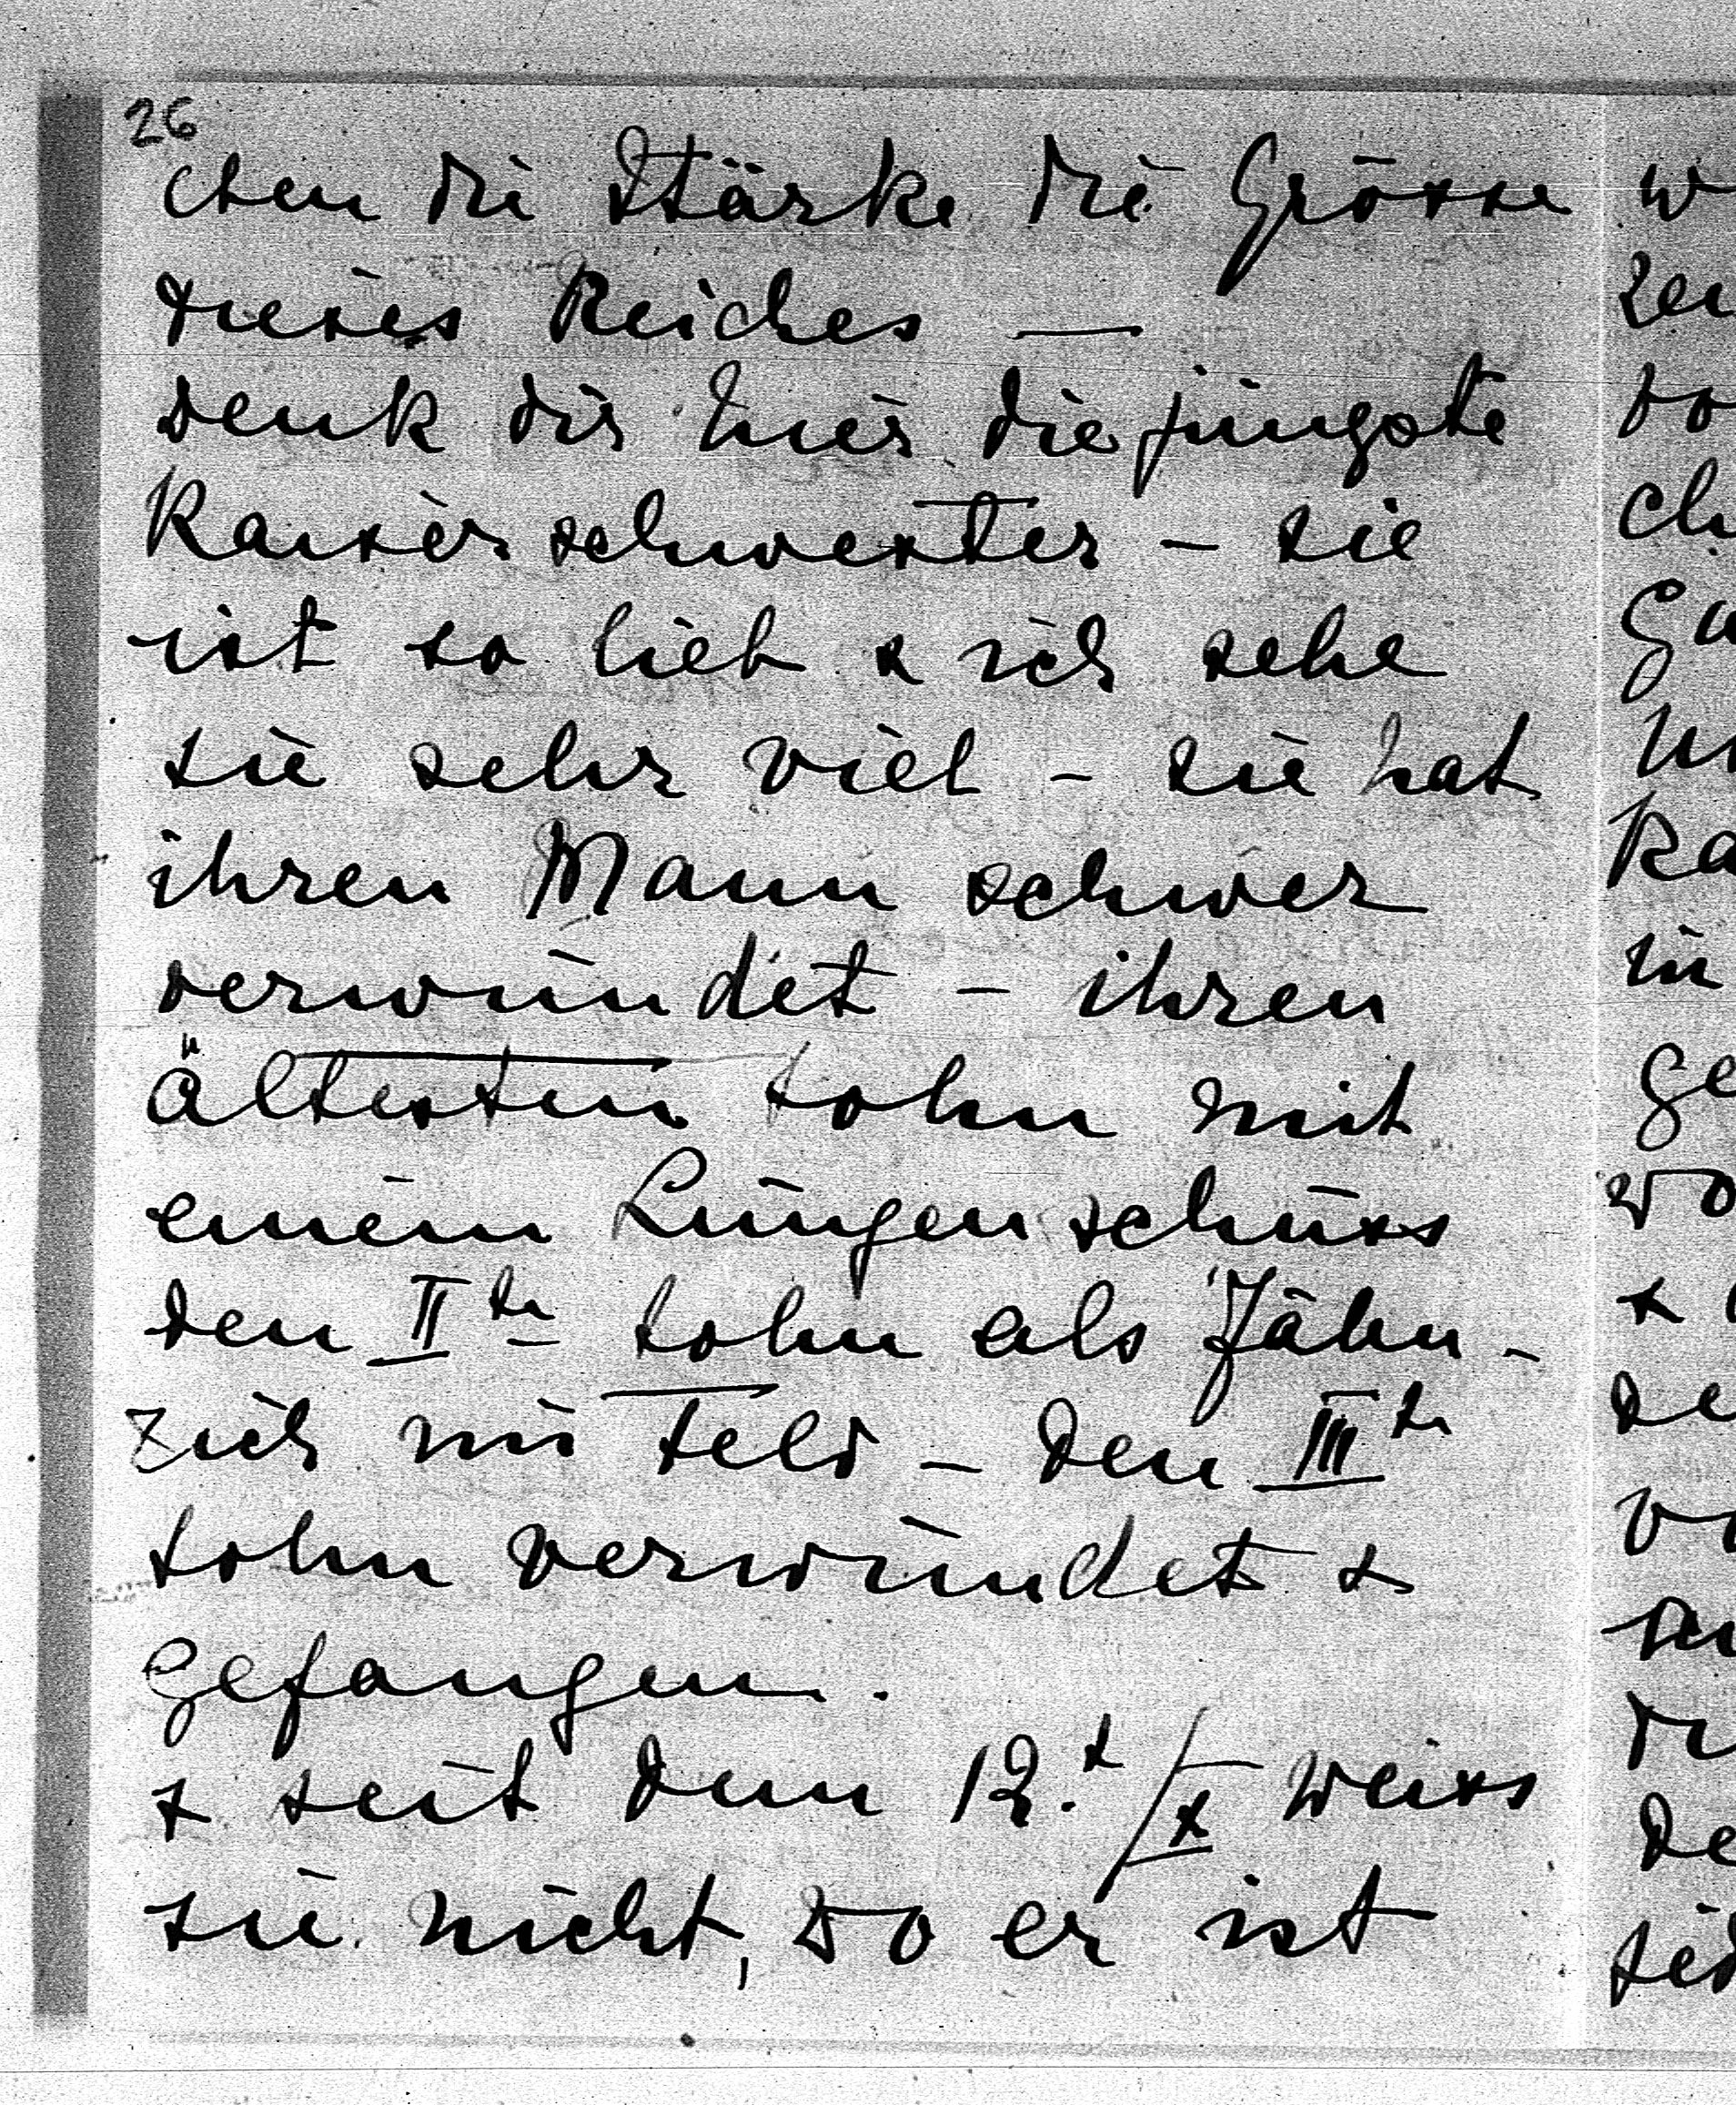 26
chen die Stärke die Grösse
dieses Reiches —
Denk dir hier die jüngste
Kaiserschwester – sie
ist so lieb & ich sehe
sie sehr viel – sie hat
ihren Mann schwer
verwundet – ihren
ältesten Sohn mit
einem Lungenschuss
den II ten Sohn als Fähn-
rich im Feld – den III ten
Sohn verwundet &
gefangen.
& seit dem 12. t/X weiss
sie nicht, wo er ist